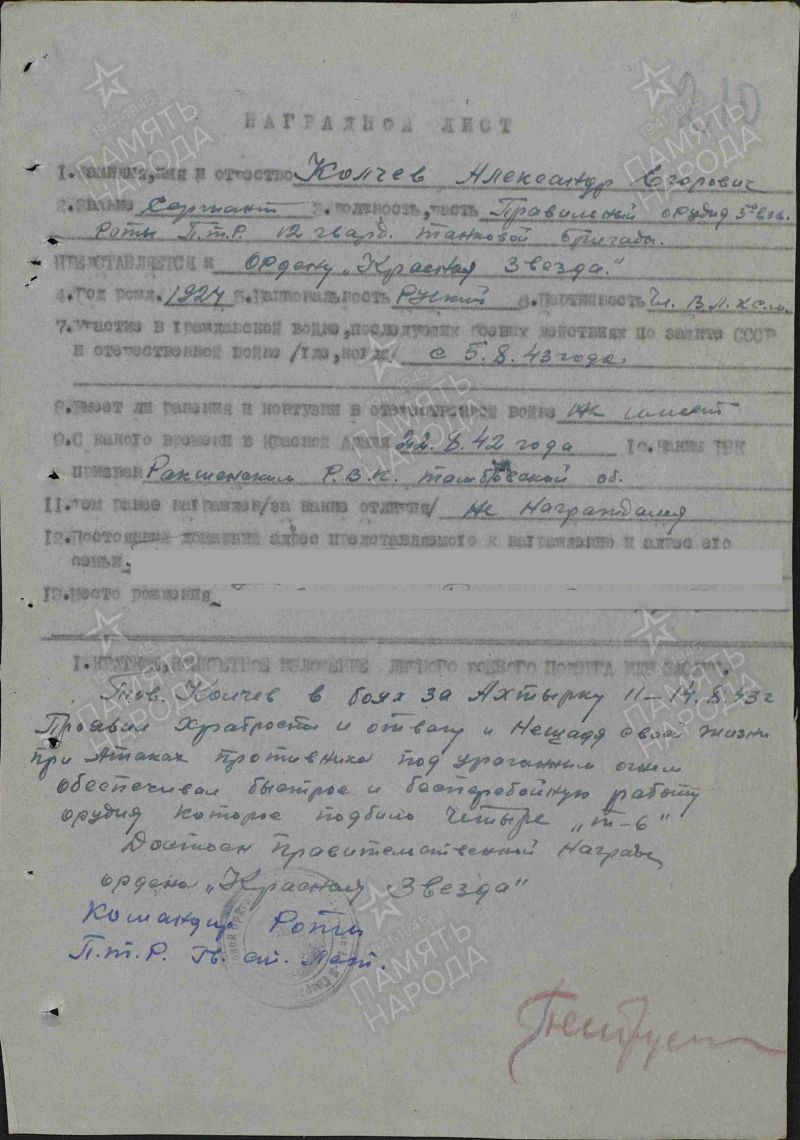 210
НАГРАДНОЙ ЛИСТ
1. Фамилия, имя и отчество Колчев Александр Егорович
2. Звание Сержант 3. Должность, часть Правильный орудия 3го взв.
Роты П.т.Р. 12 гвард. танковой бригады.
ПРЕДСТАВЛЯЕТСЯ к Ордену „Красная Звезда."
4. Год рожд. 1924 5. Национальность Руский 6. Партийность чл. В.Л.КС.М.
7. Участие в гражданской войне, последующих боевых действиях по защите СССР
и отечественной войне /где, когда/ с 5.8.43 года.
8. Имеет ли ранения и контузии в отечественной войне Не имеет
9. С какого времени в Красной Армии 22.8.42 года 10. Каким РВК
призван Ракшенским Р.В.К. Тамбовской об.
11. Чем ранее награжден /за какие отличия/ Не Награждался
12. Постоянный домашний адрес представляемого к награждению и адрес его
семьи.
13. Место рождения
I. КРАТКОЕ, КОНКРЕТНОЕ ИЗЛОЖЕНИЕ ЛИЧНОГО БОЕВОГО ПОДВИГА ИЛИ ЗАСЛУГ.
Тов. Колчев в боях за Ахтырку 11-14.8.43г
Проявил храбрость и отвагу и Нещадя своей жизни
при Атаках противника под ураганным огнем
обеспечивал быстрое и бесперебойную работу
орудия которое подбило Четыре „Т-6"
Достоен правительственной Награды
ордена „Красная Звезда"
Командир Роты
П.т.Р. Гв. ст. Лейт.
ПАМЯТЬ НАРОДА
1941-1945